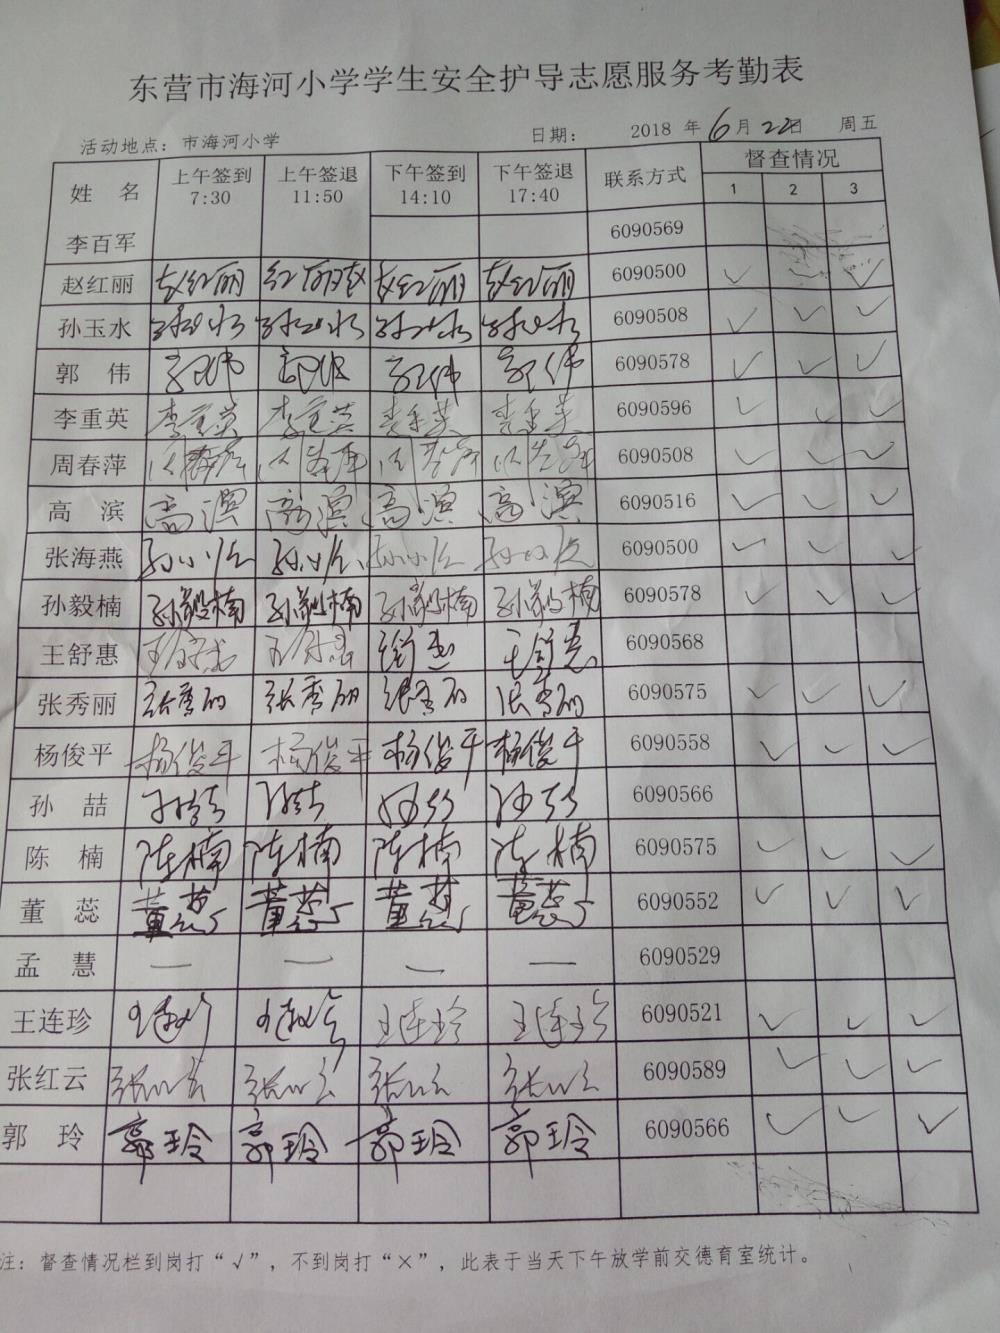 东营市海河小学学生安全护导志愿服务考勤表
活动地点：市海河小学 日期： 2018 年 6 月 22日 周五
姓 名 上午签到 7:30 上午签退 11:50 下午签到 14:10 下午签退 17:40 联系方式 督查情况
1 2 3
李百军 6090569
赵红丽 赵红丽 红丽赵 赵红丽 赵红丽 6090500 ✓ ✓ ✓
孙玉水 孙玉水 孙玉水 孙玉水 孙玉水 6090508 ✓ ✓ ✓
郭 伟 郭伟 郭伟 郭伟 郭伟 6090578 ✓ ✓ ✓
李重英 李重英 李重英 李重英 李重英 6090596 ✓ ✓ ✓
周春萍 6090508 ✓ ✓ ✓
高 滨 高滨 高滨 高滨 高滨 6090516 ✓ ✓ ✓
张海燕 6090500 ✓ ✓ ✓
孙毅楠 孙毅楠 孙毅楠 孙毅楠 孙毅楠 6090578 ✓ ✓ ✓
王舒惠 6090568
张秀丽 张秀丽 张秀丽 张秀丽 张秀丽 6090575 ✓ ✓ ✓
杨俊平 杨俊平 杨俊平 杨俊平 杨俊平 6090558 ✓ ✓ ✓
孙 喆 6090566
陈 楠 陈楠 陈楠 陈楠 陈楠 6090575 ✓ ✓ ✓
董 蕊 董蕊 董蕊 董蕊 董蕊 6090552 ✓ ✓ ✓
孟 慧 — — — — 6090529
王连珍 王连珍 王连珍 王连珍 王连珍 6090521 ✓ ✓ ✓
张红云 张红云 张红云 张红云 张红云 6090589 ✓ ✓ ✓
郭 玲 郭玲 郭玲 郭玲 郭玲 6090566 ✓ ✓ ✓
注：督查情况栏到岗打“√”，不到岗打“×”，此表于当天下午放学前交德育室统计。